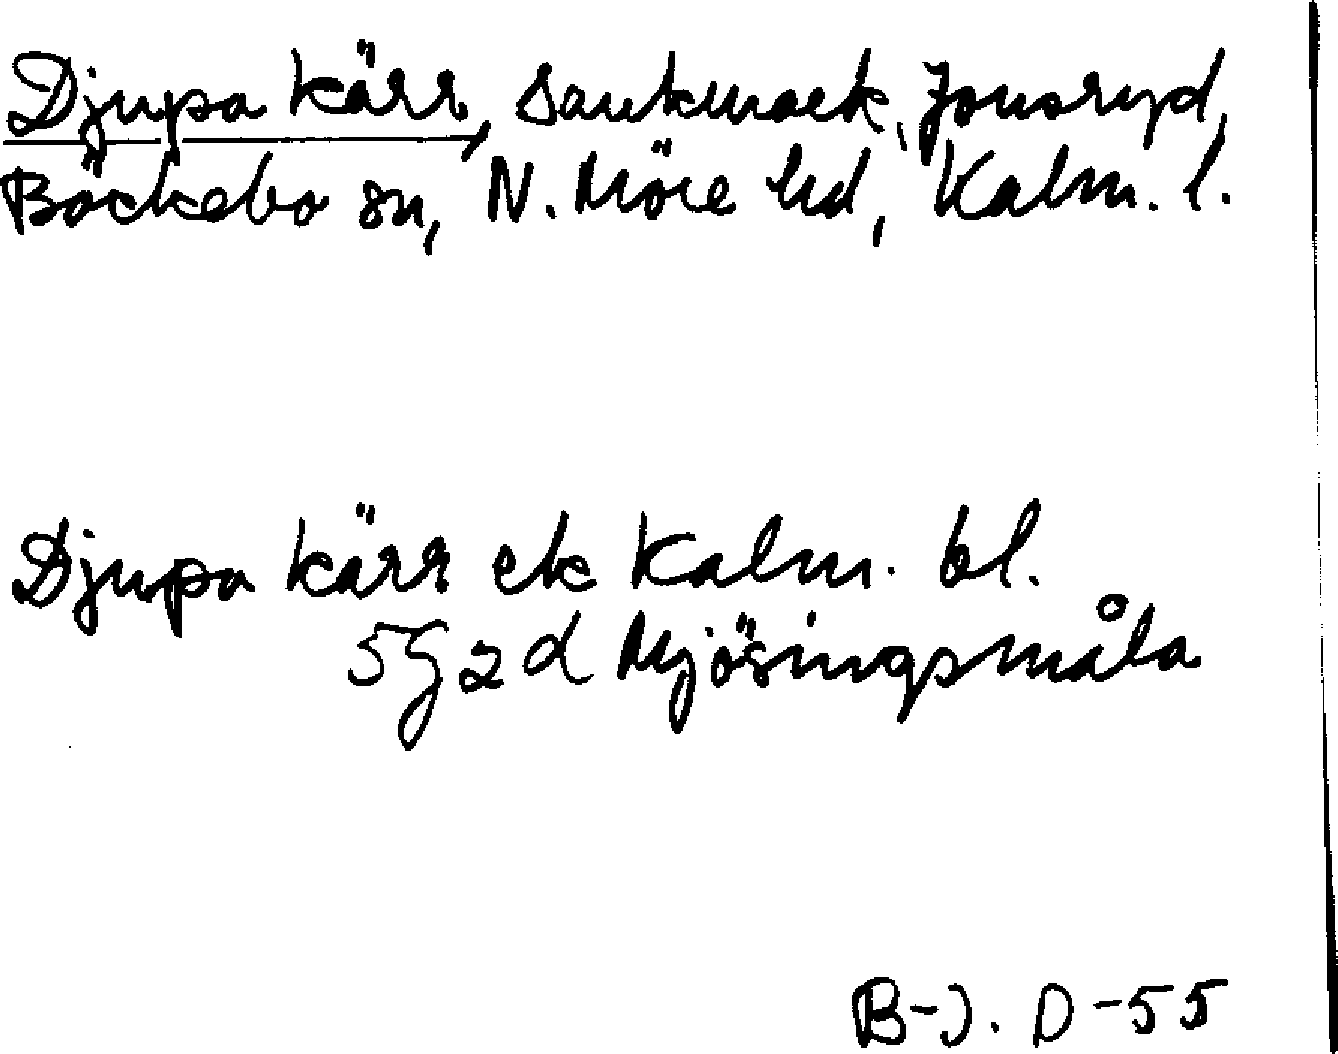 Djupa kärr, sankmark, Jonsryd,
Bäckebo sn, N. Möre hd, Kalm. l.
Djupa kärr ek Kalm. bl.
5G 2d Mjösingsmåla
B-J. D-55